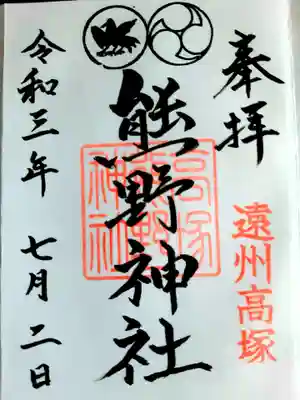 奉拝
遠州高塚
熊野神社
高塚
熊野
神社
令和三年七月二日